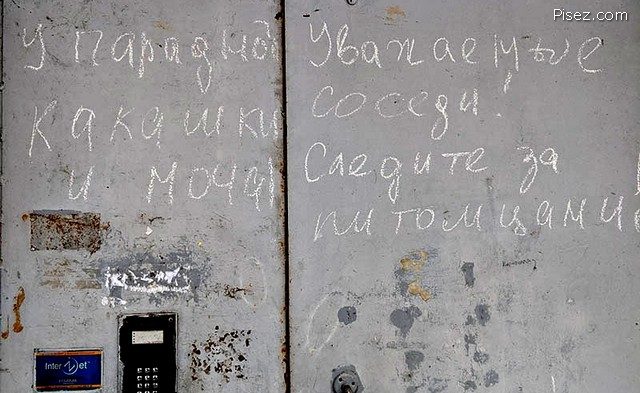 Pisez.com
У парадной
какашки
и моча
Уважаемые
соседи!
Следите за
питомцами!
InterNet